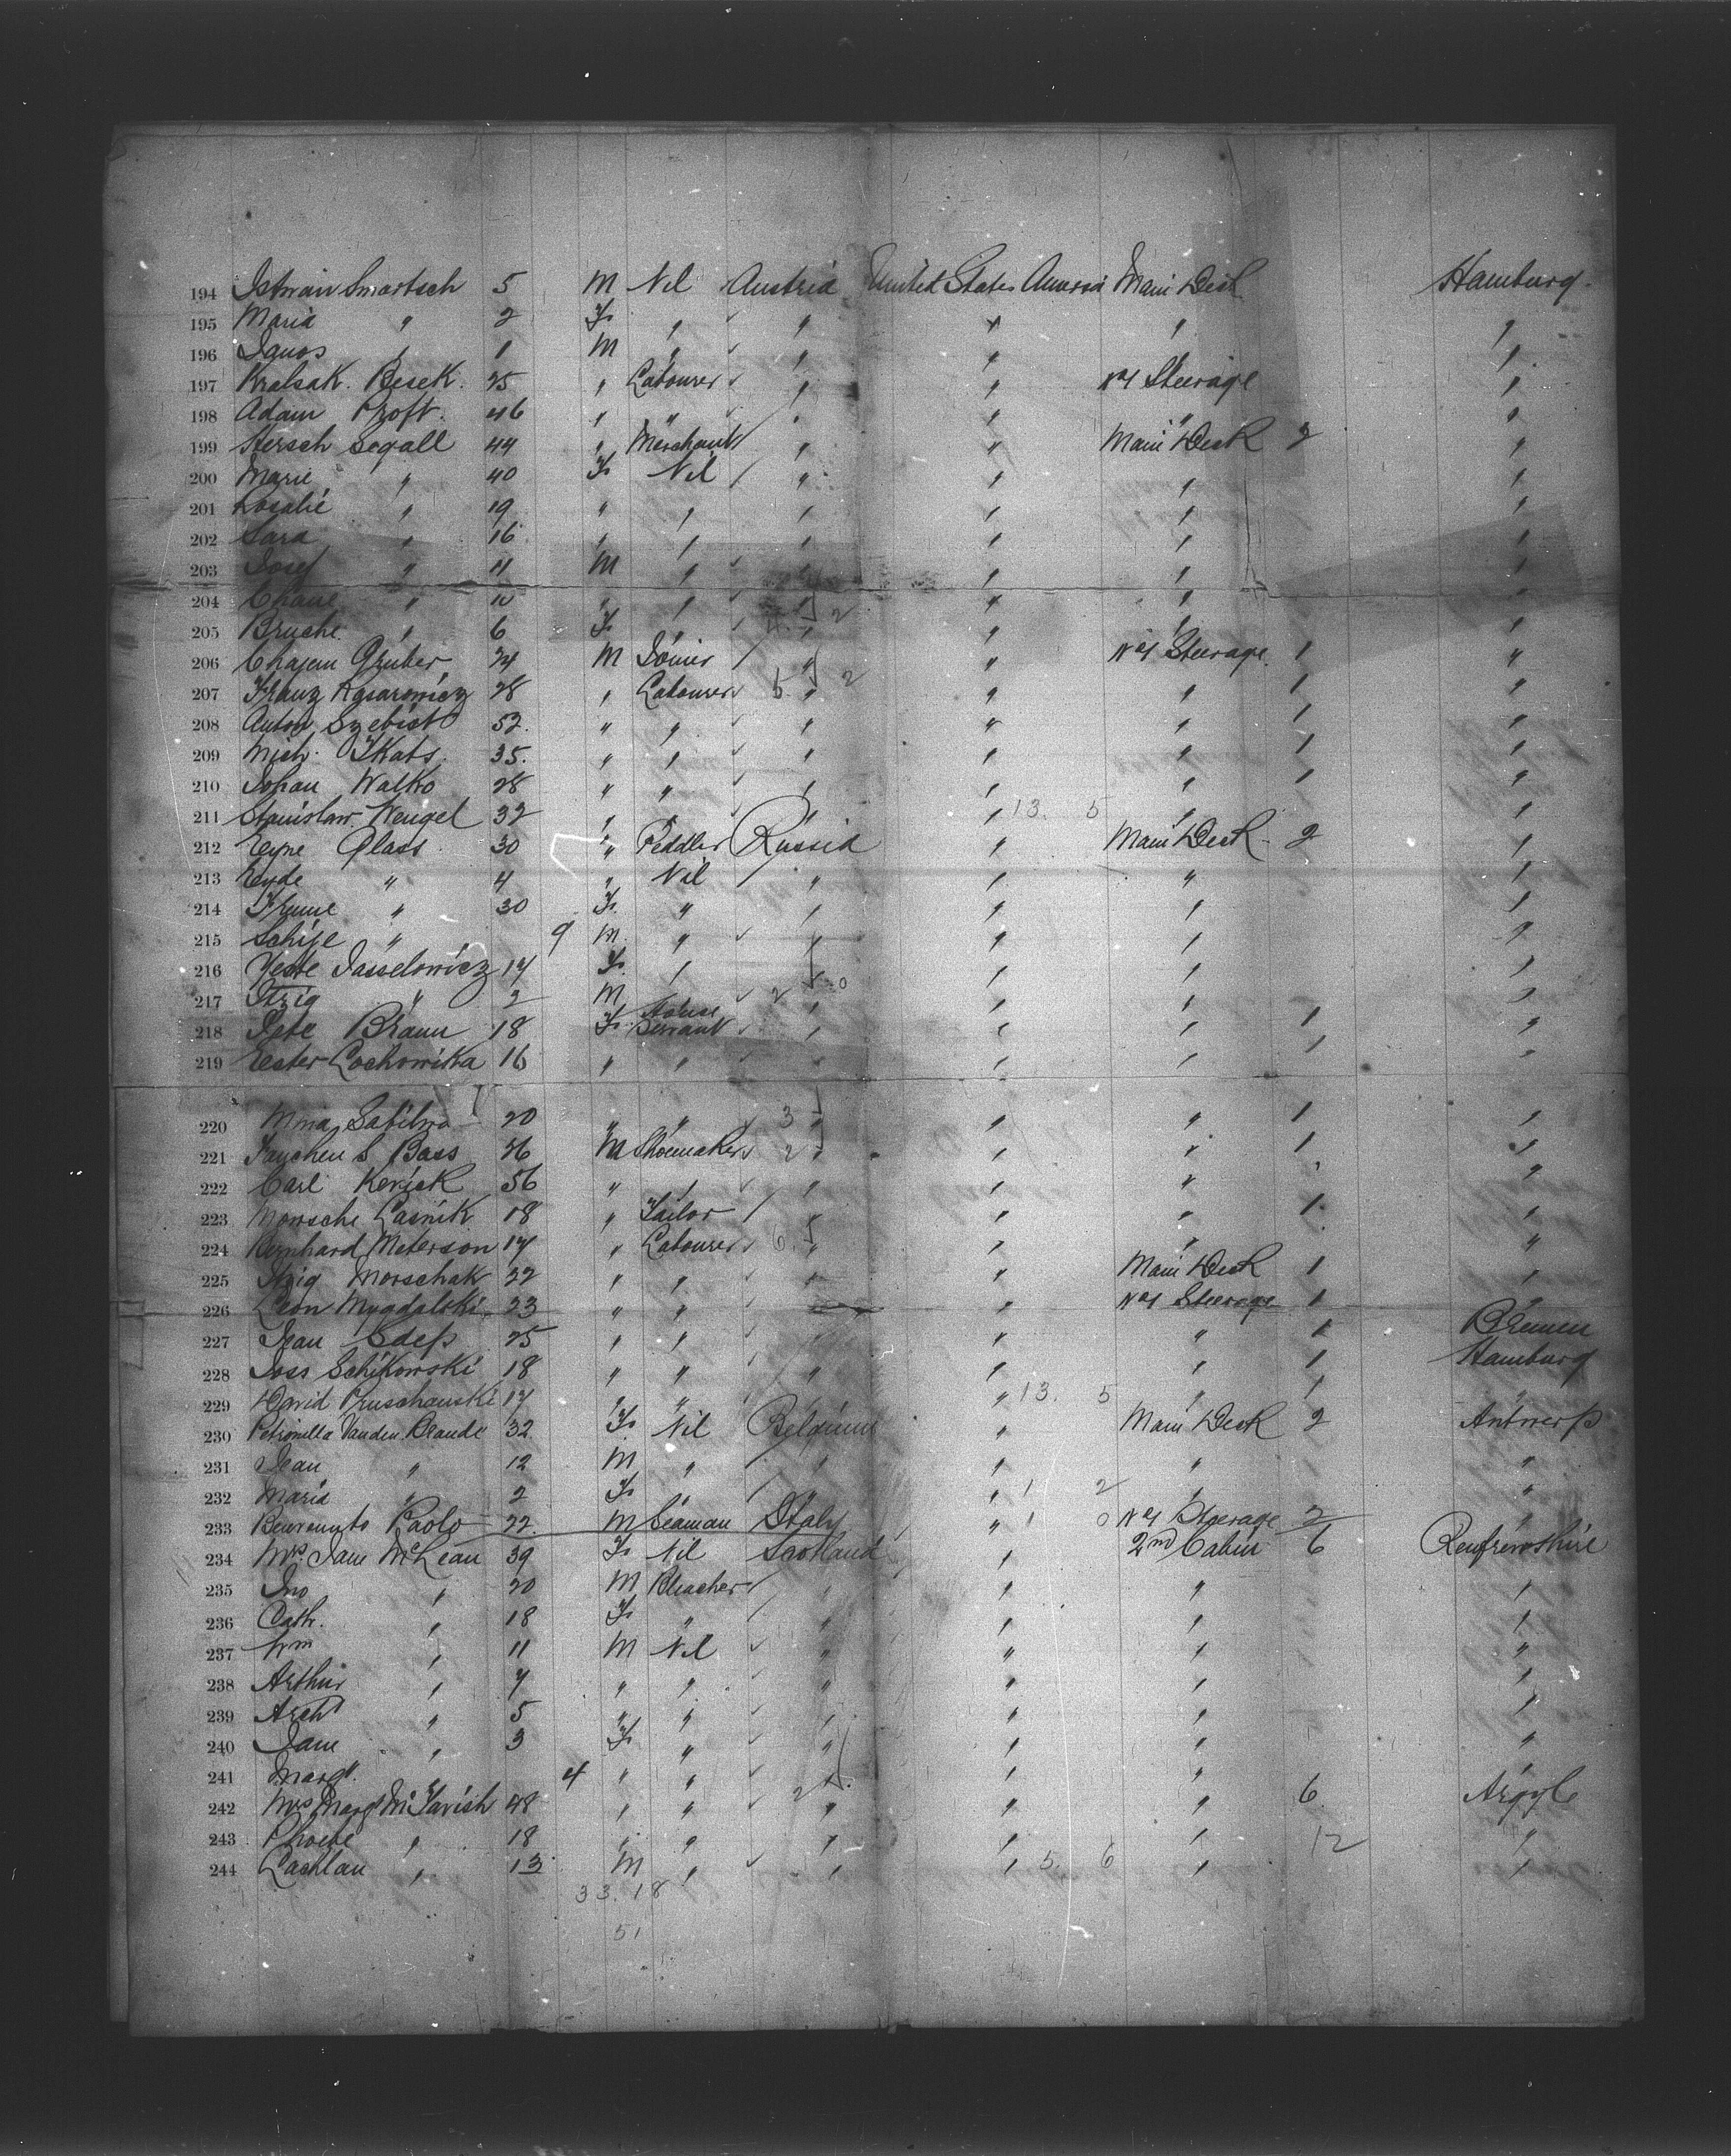 194 Istvan Smartsch 5 M Nil Austria United States America Main Deck Hamburg
195 Maria " 2 F " " " " "
196 Janos " 1 M " " " " "
197 Kralsak Besek 25 " Labourer " " No 1 Steerage "
198 Adam Proft 46 " " " " " "
199 Hersch Segall 44 " Merchant " " Main Deck 2 "
200 Marie " 40 F Nil " " " "
201 Rosalie " 19 " " " " " "
202 Sara " 16 " " " " " "
203 Josef " 11 M " " " " "
204 Chane " 10 " " " " " "
205 Bruche " 6 F " " 2 " " "
206 Chajem Gruber 24 M Joiner " " No 1 Steerage 1 "
207 Franz 28 " Labourer 5 " 2 " " 1 "
208 Anton 52 " " " " " 1 "
209 Mich. Skats 35 " " " " " 1 "
210 Johan Walko 28 " " " " " 1 "
211 Stanislaw Wengel 32 " " " " 13. 5 " "
212 Eyne Glass 30 " Peddler Russia " Main Deck 2 "
213 Eyde " 4 " Nil " " " "
214 " 30 F " " " " "
215 Schije " 9 M " " " " "
216 Jasselowicz 17 F " " 0 " " "
217 Itzig " 2 M 2 " " " "
218 Braun 18 F House Servant " " " 1 "
219 Ester 16 " " " " " 1 "
220 20 " " 3 " " " 1 "
221 S Bass 26 M Shoemaker 2 " " " 1 "
222 Carl Kerick 56 " " " " " ' "
223 Morsche Lasnik 18 " Tailor " " " 1 "
224 Bernhard Meterson 17 " Labourer 6 " " " "
225 Itzig Morschak 22 " " " " Main Deck 1 "
226 Leon Mygdalski 23 " " " " No 1 Steerage 1 "
227 Jean 25 " " " " " 1 Bremen
228 Joss Schikowski 18 " " " " " 1 Hamburg
229 David Pruschanski 17 " " " " 13. 5 " 1 "
230 Petronilla Vanden Brande 32 F Nil Belgium " Main Deck 2 Antwerp
231 Jean " 12 M " " " " "
232 Maria " 2 F " " " 1 2 " "
233 Benvenuto Paolo 22 M Seaman Italy " 1 0 No 1 Steerage 2 "
234 Mrs Jane McLean 39 F Nil Scotland " 2nd Cabin 6 Renfrewshire
235 Jno " 20 M Bleacher " " " "
236 Cath. " 18 F " " " " "
237 Wm " 11 M Nil " " " "
238 Arthur " 7 " " " " " "
239 Archd " 5 " " " " " "
240 Jane " 3 F " " " " "
241 Margt. 4 " " " " " "
242 Mrs Margt McTavish 48 " " 2 " " " 6 Argyle
243 Phoebe " 18 " " " " " 12 "
244 Lachlan " 13 M " " " 5. 6 " "
33. 18
51